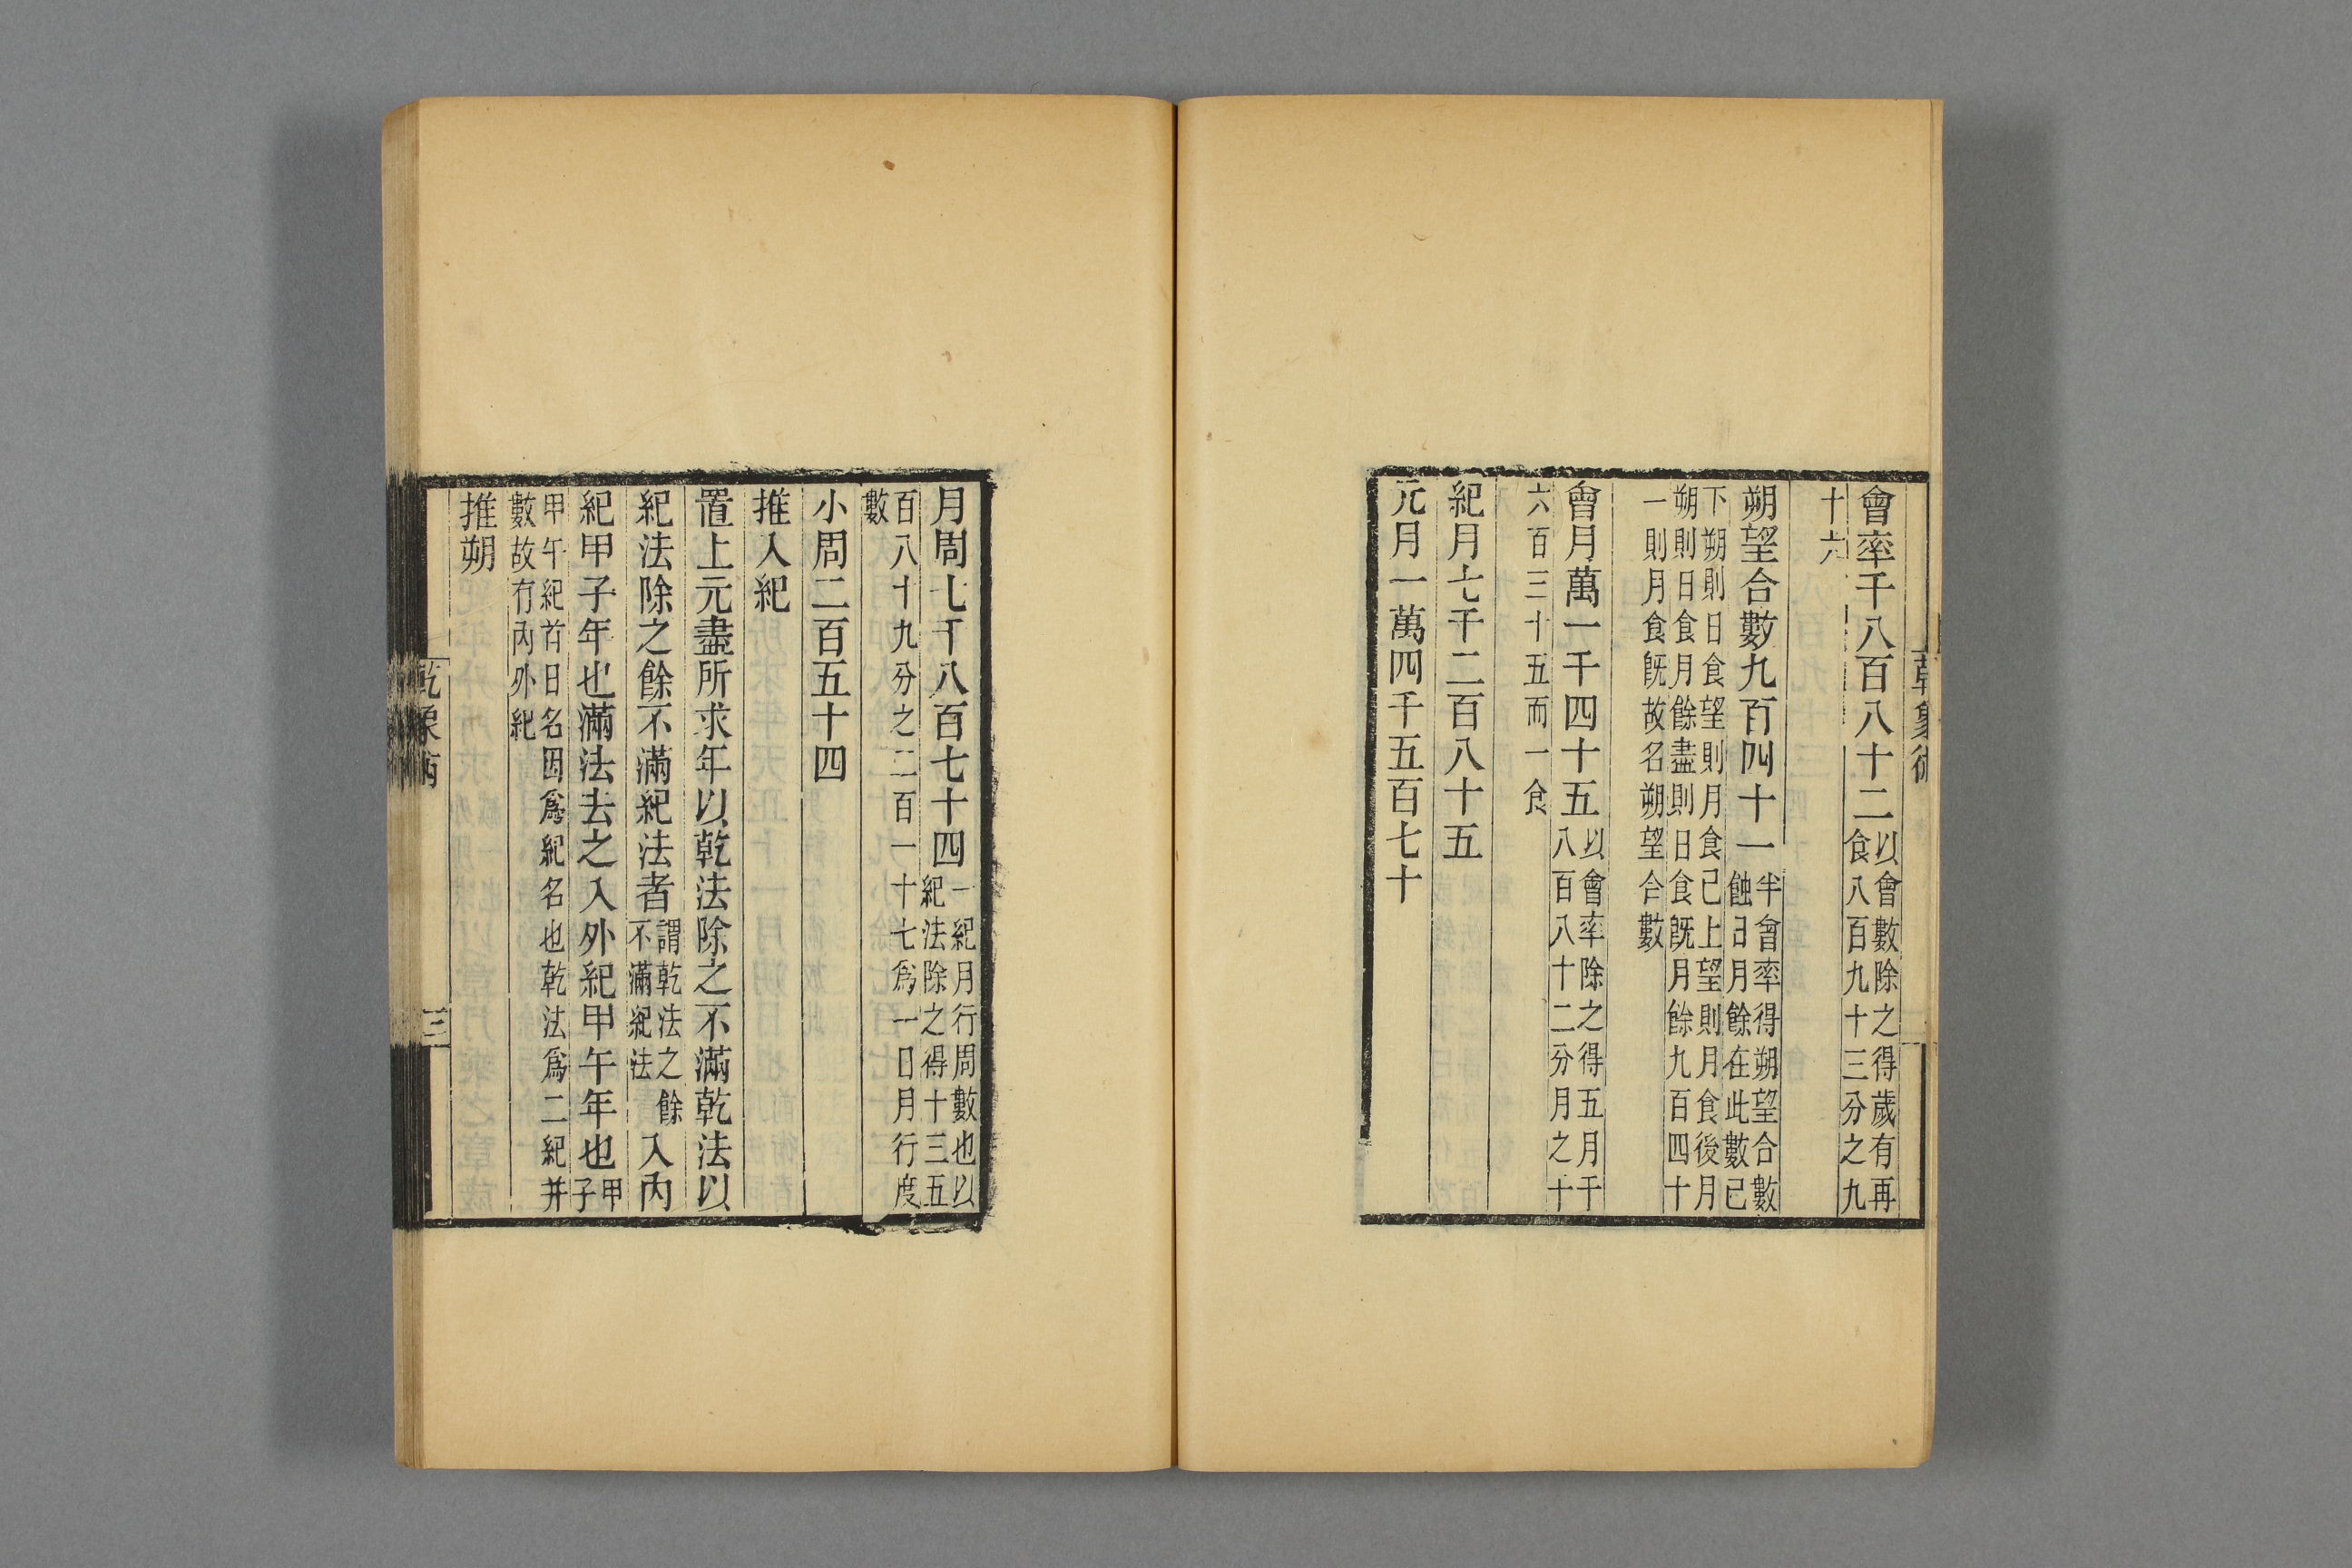 會率千八百八十二以會數除之得歲有再
食八百九十三分之九
十六
朔望合數九百四十一半會率得朔望合數
蝕日月餘在此數已
下朔則日食望則月食已上望則月食後月
朔則日食月餘盡則日食既月餘九百四十
一則月食既故名朔望合數
會月萬一千四十五以會率除之得五月千
八百八十二分月之十
六百三十五而一食
紀月七千二百八十五
元月一萬四千五百七十
月周七千八百七十四一紀月行周數也以
紀法除之得十三五
百八十九分之二百一十七爲一日月行度
數
小周二百五十四
推入紀
置上元盡所求年以乾法除之不滿乾法以
紀法除之餘不滿紀法者謂乾法之餘
不滿紀法入內
紀甲子年也滿法去之入外紀甲午年也甲
子
甲午紀首日名因爲紀名也乾法爲二紀并
數故有內外紀
推朔
三